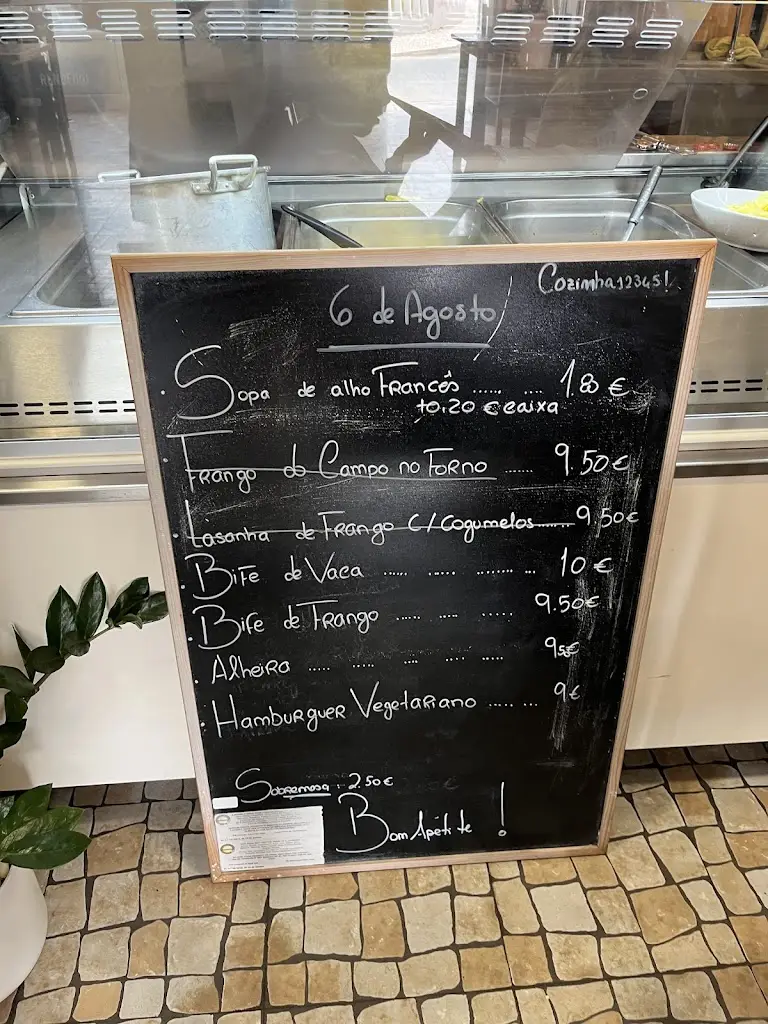 Cozinha12345!
6 de Agosto
Sopa de alho Francês ...... .... 1.80 €
+0.20 € caixa
Frango do Campo no Forno ...... 9.50€
Lasanha de Frango c/ Cogumelos...... 9.50€
Bife de Vaca ...... ..... ........ ... 10 €
Bife de Frango ...... ..... ..... 9.50€
Alheira ..... ..... .... .... ..... 9.50€
Hamburguer Vegetariano ..... ... 9€
Sobremesa: 2.50€
Bom Apétite !